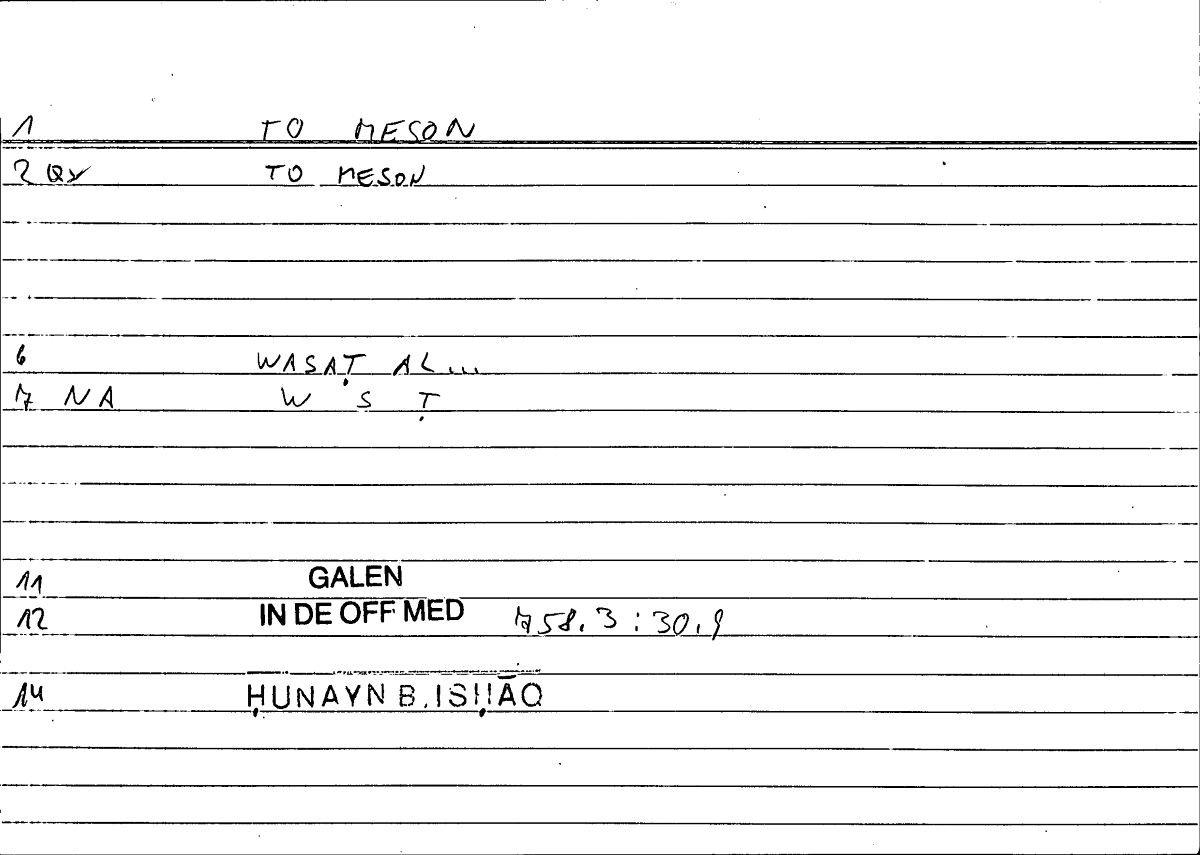 1 TO MESON
2 QV TO MESON
6 WASAṬ AL...
7 NA W S Ṭ
11 GALEN
12 IN DE OFF MED 758.3:30.9
14 ḤUNAYN B. ISḤĀQ